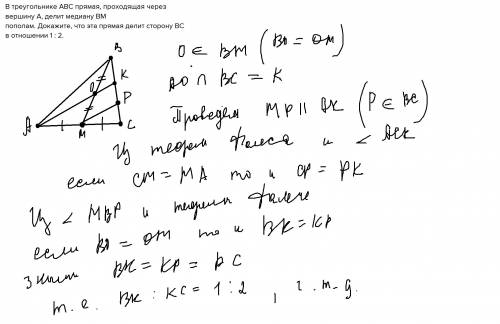 В треугольнике ABC прямая, проходящая через
вершину A, делит медиану BM
пополам. Докажите, что эта прямая делит сторону BC
в отношении 1 : 2.
O ∈ BM (BO = OM)
AO ∩ BC = K
Проведём MP || AK (P ∈ BC)
Из теоремы Фалеса и < ACK
если CM = MA то и CP = PK
Из < MBP и теоремы Фалеса
если BO = OM то и BK = KP
Значит BK = KP = PC
т.е. BK : KC = 1 : 2, ч.т.д.
B
K
O
P
A
M
C